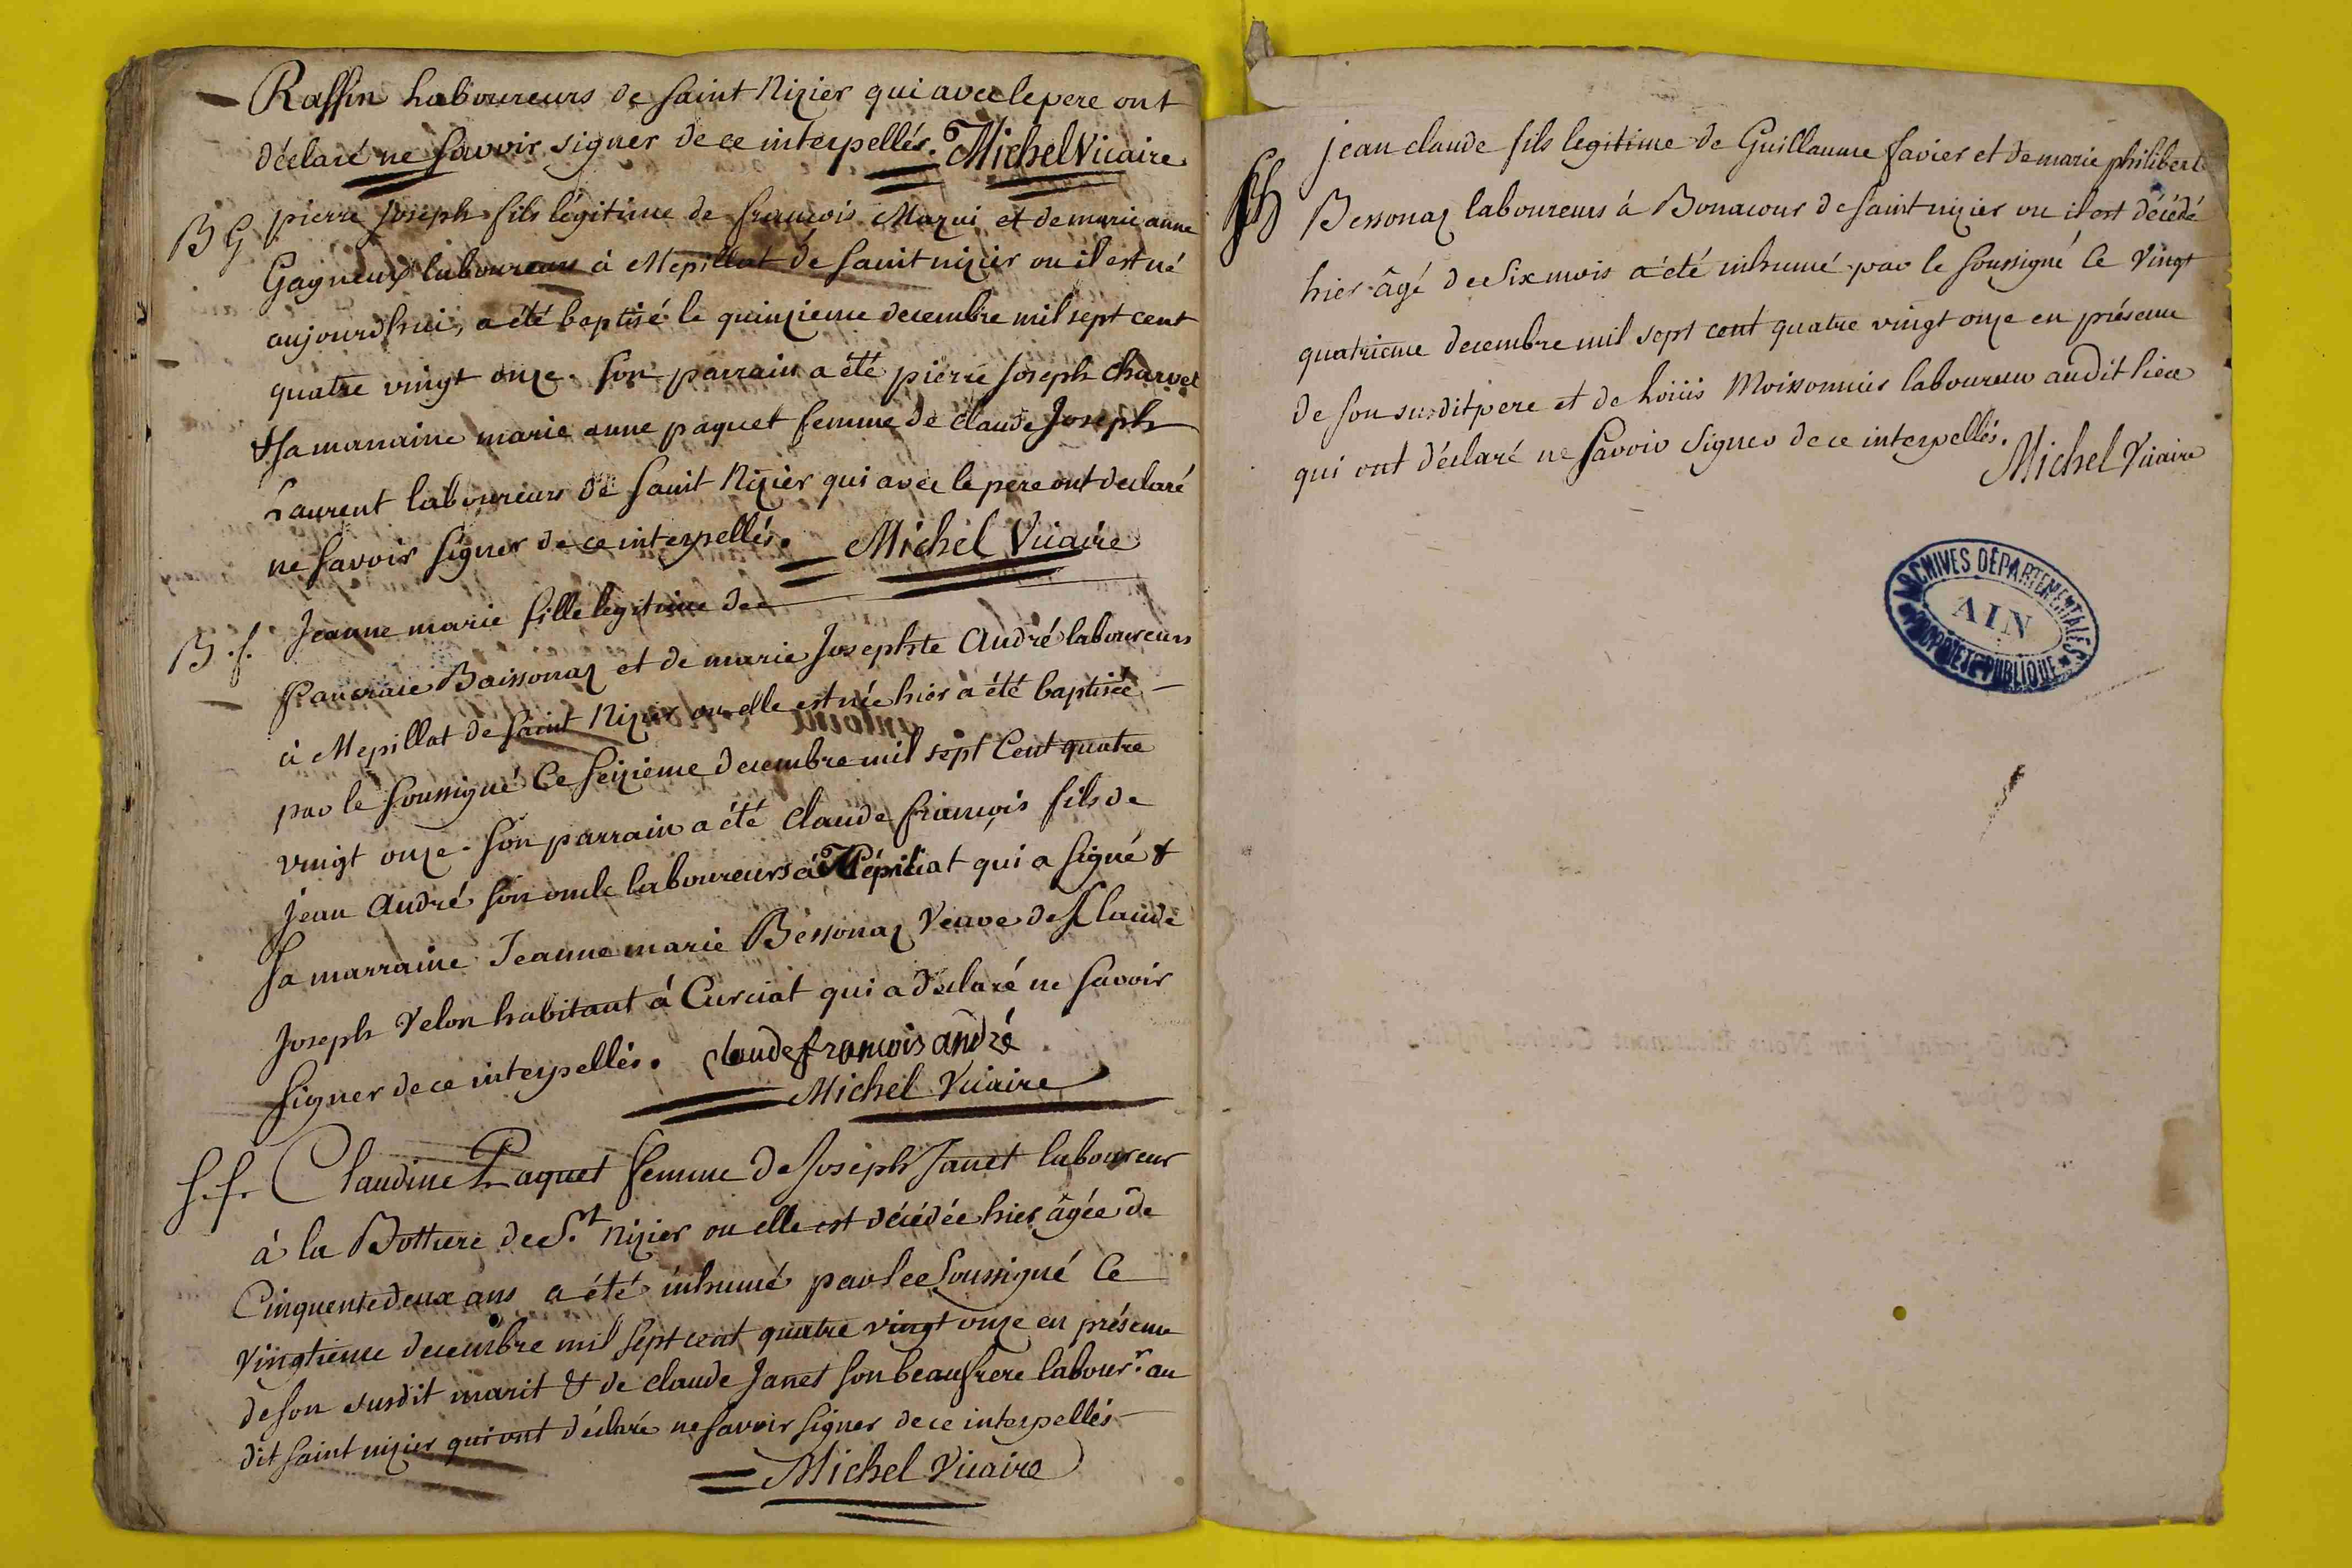 Raffin laboureurs de saint Nizier qui avec le pere ont
déclaré ne savoir signer de ce interpellés. Michel Vicaire
B G pierre Joseph fils légitime de françois Mazui et de marie anne
Gagneux laboureurs à Mepillat de saint nizier ou il est né
aujourdhui, a été baptisé le quinzieme decembre mil sept cent
quatre vingt onze. son parrain a été pierre Joseph Charvet
& sa marraine marie anne paquet femme de claude Joseph
Laurent laboureurs de saint Nizier qui avec le pere ont declaré
ne savoir signer de ce interpellés. Michel Vicaire
B. f. Jeanne marie fille legitime de
pancrace Baissonaz et de marie Josephte André laboureurs
à Mepillat de saint Nizier ou elle est née hier a été baptisée
par le soussigné Ce seizieme decembre mil sept Cent quatre
vingt onze. son parrain a été Claude françois fils de
jean André son oncle laboureurs à Mépillat qui a signé &
sa marraine Jeanne marie Bessonaz Veuve de Claude
Joseph Velon habitant à Curciat qui a déclaré ne savoir
signer de ce interpellés. claude francois andré
Michel Vicaire
S. f. Claudine Paquet femme de Joseph Janet laboureur
à la Bottiere de S.t Nizier ou elle est décédée hier âgée de
Cinquente deux ans a été inhumé par le soussigné Ce
vingtieme decembre mil sept cent quatre vingt onze en présence
de son susdit marit & de claude Janet son beaufrere labour.r au
dit saint nizier qui ont déclaré ne savoir signer de ce interpellés
Michel Vicaire
jean claude fils legitime de Guillaume favier et de marie philiberte
Bessonaz laboureurs à Bonacour de saint nizier ou il est décédé
hier âgé de six mois a été inhumé par le soussigné Ce Vingt
quatrieme decembre mil sept cent quatre vingt onze en présence
de son susdit pere et de Moissonnier laboureur audit lieu
qui ont déclaré ne savoir signer de ce interpellés.
Michel Vicaire
ARCHIVES DÉPARTEMENTALES
AIN
PROPRIÉTÉ PUBLIQUE